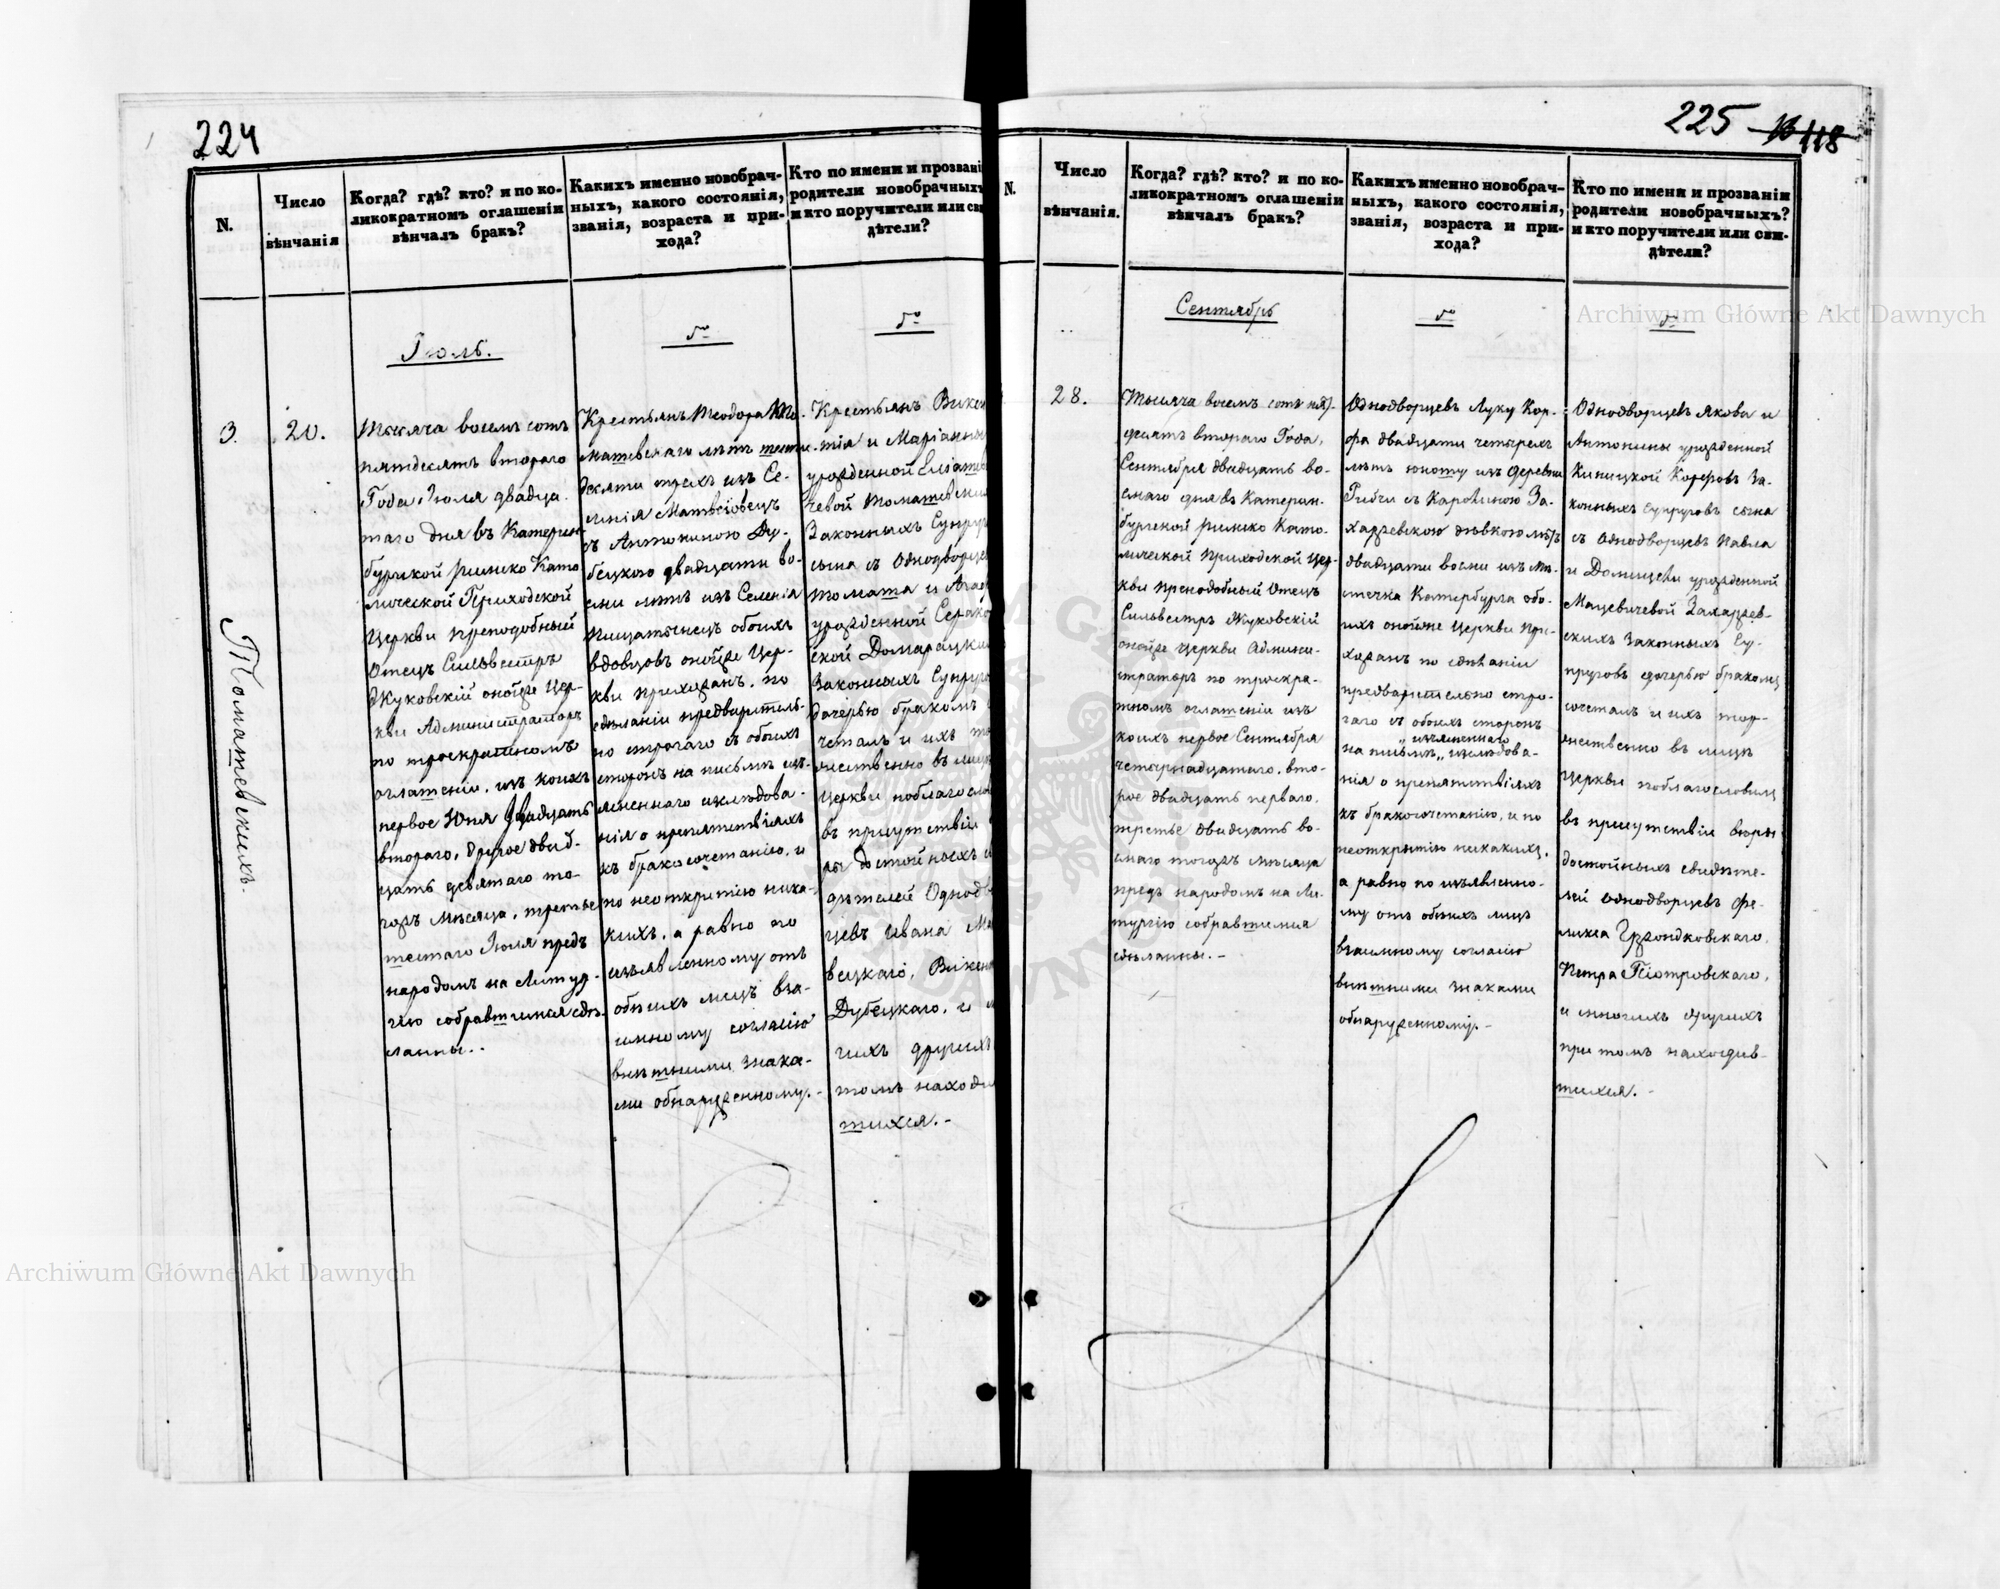 224
N.
Число
вѣнчанія
Когда? гдѣ? кто? и по ко-
ликократномъ оглашеніи
вѣнчалъ бракъ?
Какихъ именно новобрач-
ныхъ, какого состоянія,
званія, возраста и при-
хода?
Кто по имени и прозвані
родители новобрачныхъ
и кто поручители или св
дѣтели?
Іюль.
3.
20.
Томашевскихъ.
Тысяча восемъ сотъ
пятдесятъ второго
Года, Іюля двадца
таго дня въ Катерин
бургской римско Като
лической Приходской
Церкви преподобный
Отецъ Сильвестръ
Жуковскій онойже Цер-
кви Администраторъ
по троекратномъ
оглашеніи, изъ коихъ
первое Юня двадцать
втораго, другое двад-
цать девятаго то-
гожъ мѣсяца, третье
шестаго Іюля предъ
народомъ на Литур-
гію собравшимся сдѣ-
ланны.-
до
Крестьянъ Теодора То-
машевскаго лѣтъ шести-
десяти трехъ изъ Се-
ленія Матвѣіовецъ
съ Антониною Ду-
бецкою двадцати во-
сми лѣтъ изъ Селенія
обоихъ
вдовцовъ онойже Цер-
кви прихожанъ, по
сдѣланіи предваритель-
но строгаго съ обоихъ
сторонъ на письмѣ изъ-
ясненнаго изслѣдова-
нія о препятствіяхъ
къ бракосочетанію, и
по неоткрытію ника-
кихъ, а равно по
изъявленному отъ
обоихъ лицъ вза-
имному согласію
внѣшними знака-
ми обнаруженному.-
до
Крестьянъ Викен
тія и Маріанны
урожденной
чевой Томашевски
Законныхъ Супру
сына съ Однодворце
Томаша и Ага
урожденной
ской Домарацки
Законныхъ Супруго
дочерью бракомъ
четалъ и ихъ то
жественно въ лиц
Церкви поблагосло
въ присутствіи
ры достойныхъ
дѣтелей Однод
цевъ Ивана
вецкаго, Викен
Дубецкаго, и
гихъ другихъ
томъ находи
шихся.-
225
118
N.
Число
вѣнчанія.
Когда? гдѣ? кто? и по ко-
ликократномъ оглашеніи
вѣнчалъ бракъ?
Какихъ именно новобрач-
ныхъ, какого состоянія,
званія, возраста и при-
хода?
Кто по имени и прозванія
родители новобрачныхъ?
и кто поручители или сви-
дѣтели?
Сентябрь
28.
Тысяча восемъ сотъ пят-
десятъ второго Года,
Сентября двадцать во-
смаго дня въ Катерин-
бургской римско Като-
лической Приходской Цер-
кви преподобный Отецъ
Сильвестръ Жуковскій
онойже Церкви Админи-
страторъ по троекра-
тномъ оглашеніи изъ
коихъ первое Сентября
четырнадцатаго, вто-
рое двадцать перваго,
третье двадцать во-
смаго тогожъ мѣсяца
предъ народомъ на Ли-
тургію собравшимся
сдѣланны.-
до
Однодворцевъ Луку Кор-
фа двадцати четырехъ
лѣтъ юношу изъ деревни
съ Каролиною За-
харжевскою дѣвкою лѣтъ
двадцати восми изъ Мѣ-
стечка Катербурга обо-
ихъ онойже Церкви При-
хожанъ по сдѣланіи
предварительно стро-
гаго съ обоихъ сторонъ
изъясненнаго
на письмѣ „ изслѣдова-
нія о препятствіяхъ
къ бракосочетанію, и по
неоткрытію никакихъ,
а равно по изъявленно-
му отъ обоихъ лицъ
взаимному согласію
внѣшними знаками
обнаруженному.-
до
Однодворцевъ Якова и
Антонины урожденной
Киницкой Корфовъ За-
конныхъ Супруговъ сына
съ Однодворцевъ Павла
и Доминцели урожденной
Мацевичевой Захаржев-
скихъ Законныхъ Су-
пруговъ дочерью бракомъ
сочеталъ и ихъ тор-
жественно въ лицѣ
Церкви поблагословилъ
въ присутствіи вѣры
достойныхъ свидѣте-
лей Однодворцевъ Фе-
ликса Гржондковскаго,
Петра Піотровскаго,
и многихъ другихъ
при томъ находив-
шихся.-
Archiwum Główne Akt Dawnych
Archiwum Główne Akt Dawnych